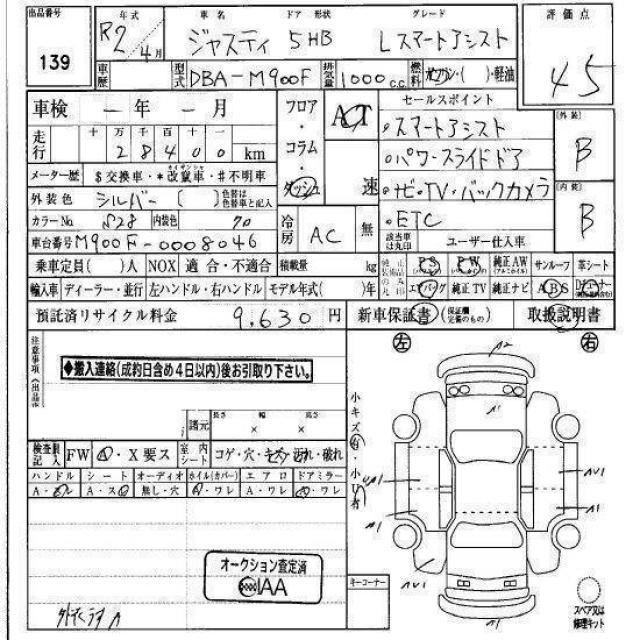 出品番号 139
年式 R2年 4月
車名 ジャスティ
ドア 形状 5HB
グレード Lスマートアシスト
評価点 4.5
車歴
型式 DBA-M900F
排気量 1000 c.c.
燃料 ガソリン・( )・軽油
車検 ー 年 ー 月
フロア・コラム・ダッシュ
AT 速
セールスポイント
スマートアシスト
パワースライドドア
ナビ・TV・バックカメラ
ETC
該当車は丸印 ユーザー仕入車
[外装] B
[内装] B
走行 十万千百十一
28400 km
メーター歴 $交換車・*改竄車・#不明車
外装色 シルバー ( ) 色替は色替車と記入
カラーNo S28 内装色 70
冷房 AC 無
車台番号 M900F-0008046
乗車定員( )人 NOX 適合・不適合 積載量 kg
純正装備品のみ丸印 PS PW 純正AW サンルーフ 革シート
輸入車 ディーラー・並行 左ハンドル・右ハンドル モデル年式( )年
エアバッグ 純正TV 純正ナビ ABS
預託済リサイクル料金 9,630 円
新車保証書 (保証欄定備のもの) 取扱説明書
注意事項
◆搬入連絡(成約日含め4日以内)後お引取り下さい。
諸元 長さ × 幅 × 高さ
左 右
A2
A1
小キズ・小凹有
検査員記入 FW A・X要ス
室内シート コゲ・穴・キズ・汚れ・破れ
ハンドル シート オーディオ ホイル(カバー) エアロ ドアミラー
A・スレ A・スレ 無し・穴 A・ワレ A・ワレ A・ワレ
UA1
A1
AU1
A1
AU1
オークション査定済
IAA
キーコーナー
スペア又は修理キット